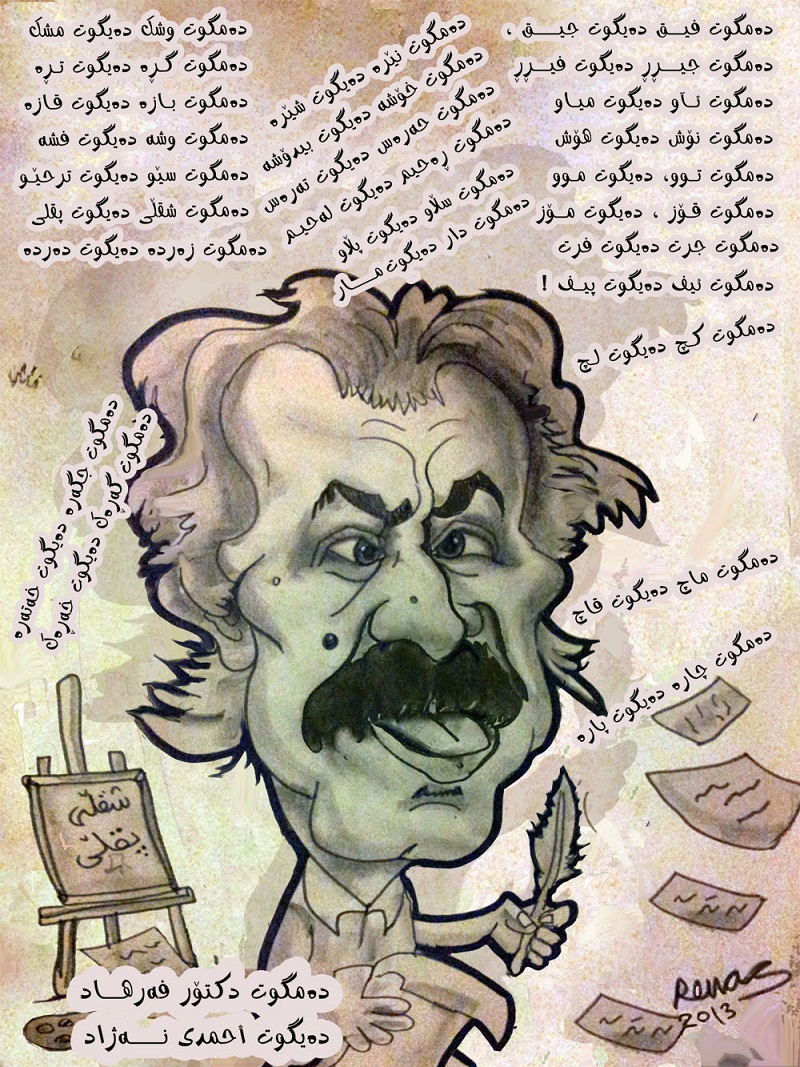 دەمگوت فیـق دەیگوت جیـــق ،
دەمگوت جیــڕڕ دەیگوت فیــڕڕ
دەمگوت ناو دەیگوت میاو
دەمگوت نۆش دەیگوت هۆش
دەمگوت تــوو، دەیگوت مــوو
دەمگوت قـۆز ، دەیگوت مــۆز
دەمگوت جرت دەیگوت فرت
دەمگوت نیف دەیگوت پیـف !
دەمگوت کچ دەیگوت لچ
دەمگوت نێرە دەیگوت شێرە
دەمگوت خۆشە دەیگوت بیدۆشە
دەمگوت حەرەس دەیگوت تەرەس
دەمگوت ڕەحیم دەیگوت لەحیم
دەمگوت سڵاو دەیگوت پڵاو
دەمگوت دار دەیگوت مــار
دەمگوت وشک دەیگوت مشک
دەمگوت گڕە دەیگوت تڕە
دەمگوت بازە دەیگوت قازە
دەمگوت وشە دەیگوت فشە
دەمگوت سێو دەیگوت ترحێو
دەمگوت شقڵی دەیگوت پقلی
دەمگوت زەردە دەیگوت دەردە
دەمگوت جگەرە دەیگوت خەتەرە
دەمگوت گەڕەک دەیگوت خەڕەک
دەمگوت ماچ دەیگوت قاچ
دەمگوت چارە دەیگوت پارە
شقڵی
پقلی
دەمگوت دکتۆر فەرهــاد
دەیگوت احمدی نــەژاد
Renas
2013